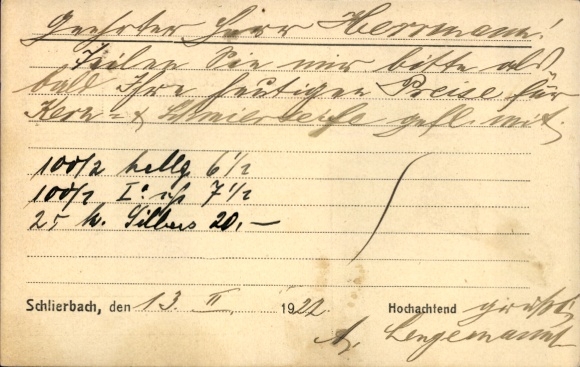 Geehrter Herr Herrmann!
Teilen Sie mir bitte als
bald Ihre heutigen Preise für
Kern= & Schmierseife gefl. mit.
100/2 hellg 6 1/2
100/2 Iª 7 1/2
25 K. Silbers 20,—
Schlierbach, den 13. II. 1922. Hochachtend grüßt
A. Lengemann